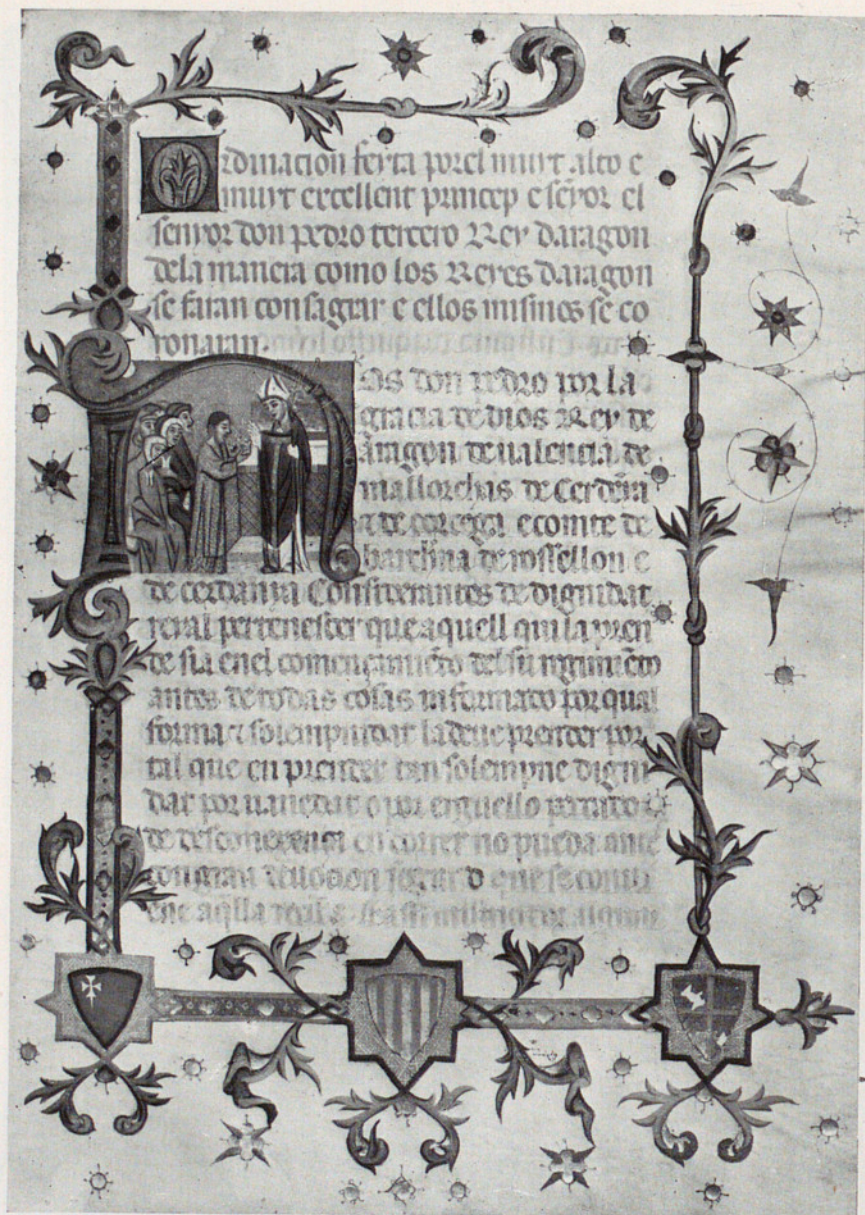 Ordinacion feyta por el muyt alto e
muyt excellent princep e senyor el
senyor don pedro tercero Rey daragon
dela manera como los Reyes daragon
se faran consagrar e ellos mismos se co
ronaran.
Nos don pedro por la
gracia de dios Rey de
aragon de ualencia de
mallorchas de Cerdenia
de corcega e comte de
barchna de rossellon e
de cerdanya Considerantes de dignidat
reyal pertenescer que aquell qui la pren
de sia enel començamiẽto del su regimiẽto
antes de todas cosas informado por qual
forma ⁊ solempnidat la deue prender por
tal que en prender tan solempne digni
dat por uanedat o por erguello peccado
de desconexença en correr no pueda ante
con gran deuocion